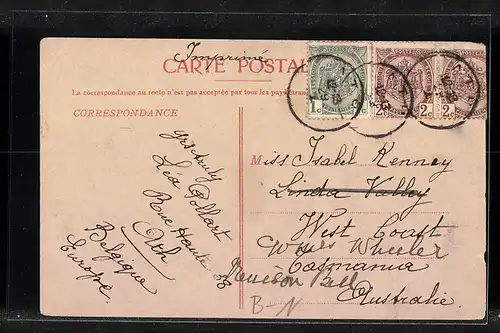 Imprimé
CARTE POSTAL
La correspondance au recto n'est pas acceptée par tous les pays
CORRESPONDANCE
1c
2c
2c
2c
Léa Pollart
Rue Haute 38
Ath
Belgique
Europe.
Miss Isabel Kenney
Linda Valley
West Coast
Wheeler
Tasmania
B-N
Australie